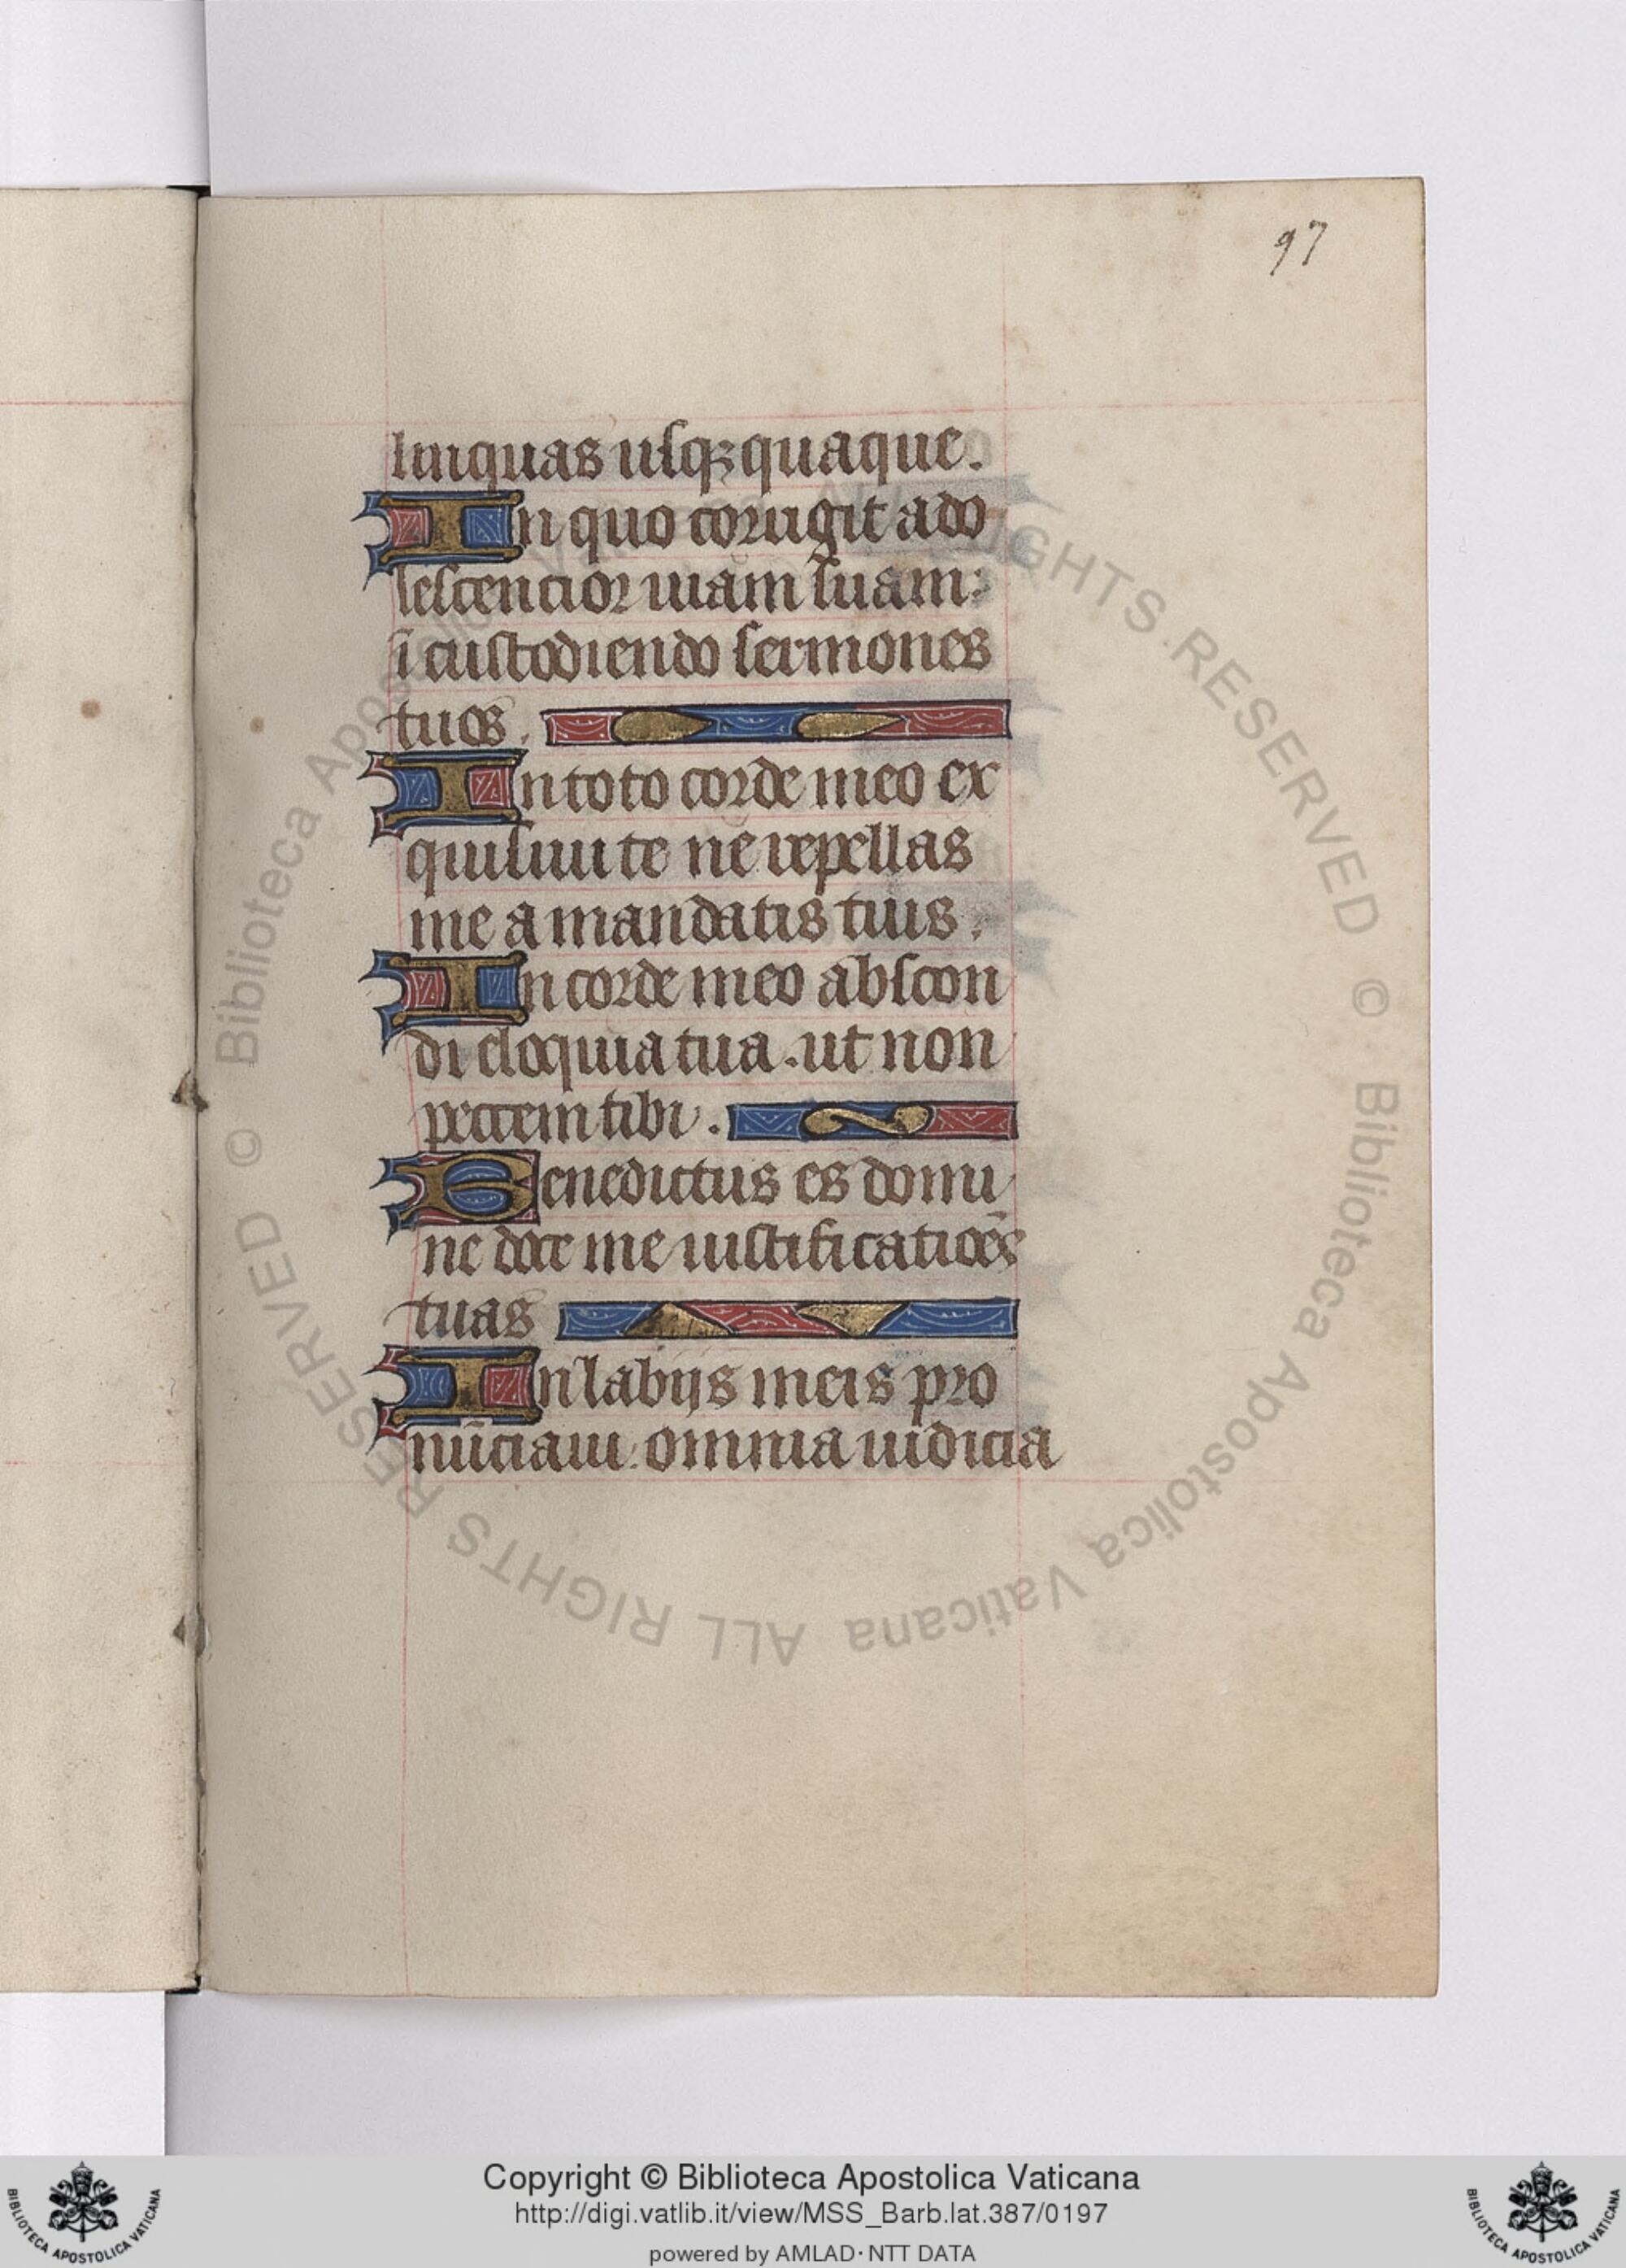 97
linquas usqꝫquaque.
In quo corrigit ado
lescencior uiam suam:
ī custodiendo sermones
tuos.
In toto corde meo ex
quisiui te ne repellas
me a mandatis tuis.
In corde meo abscon
di eloquia tua. ut non
peccem tibi.
Benedictus es domi
ne doce me iustificatiōes
tuas
In labijs meis pro
nūciaui. omnia iudicia
© Biblioteca Apostolica Vaticana ALL RIGHTS RESERVED © Biblioteca Apostolica Vaticana ALL RIGHTS RESERVED
Copyright © Biblioteca Apostolica Vaticana
http://digi.vatlib.it/view/MSS_Barb.lat.387/0197
powered by AMLAD·NTT DATA
BIBLIOTECA APOSTOLICA VATICANA
BIBLIOTECA APOSTOLICA VATICANA